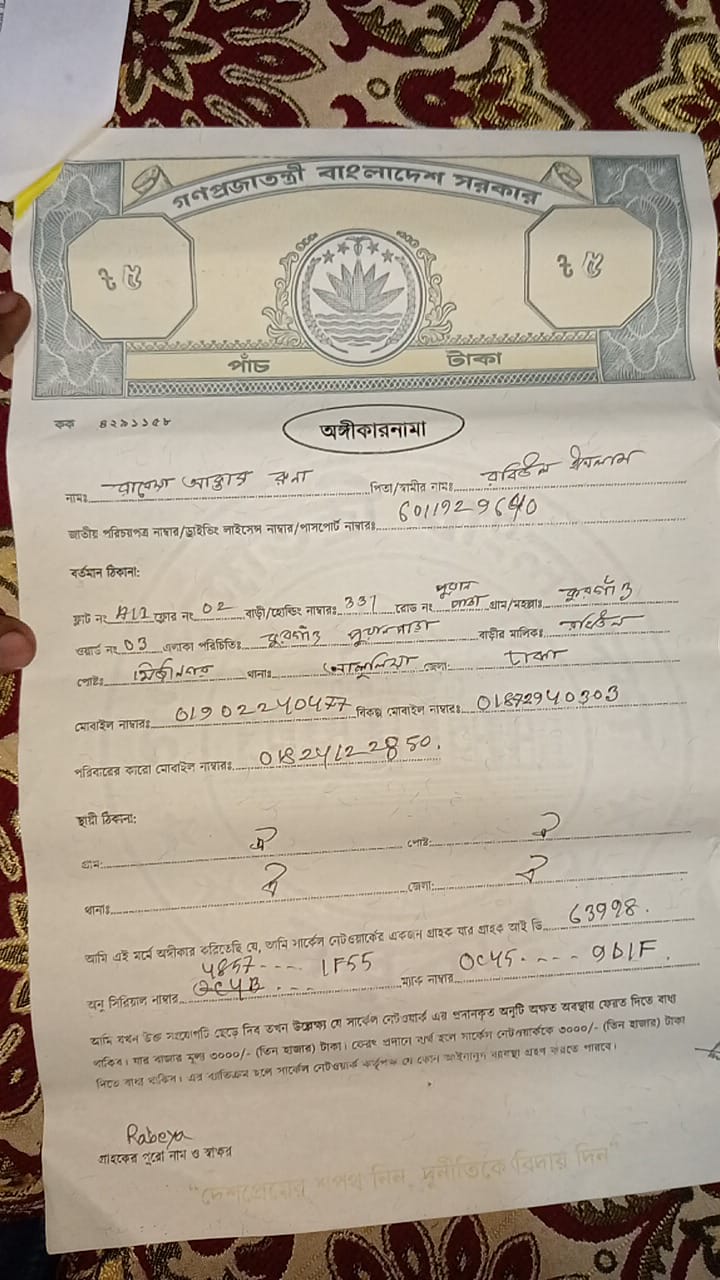 গণপ্রজাতন্ত্রী বাংলাদেশ সরকার
৳ ৫ ৳ ৫
পাঁচ টাকা
কক ৪২৯১১৫৮
অঙ্গীকারনামা
নামঃ রাবেয়া আক্তার রুনা পিতা/স্বামীর নামঃ রবিউল ইসলাম
জাতীয় পরিচয়পত্র নাম্বার/ড্রাইভিং লাইসেন্স নাম্বার/পাসপোর্ট নাম্বারঃ 6011929640
বর্তমান ঠিকানা:
ফ্লাট নং A12 ফ্লোর নং 02 বাড়ী/হোল্ডিং নাম্বারঃ 331 রোড নং পুরান পাড়া গ্রাম/মহল্লাঃ কুরগাঁও
ওয়ার্ড নং 03 এলাকা পরিচিতিঃ কুরগাঁও পুরানপাড়া বাড়ীর মালিকঃ রবিউল
পোষ্টঃ মির্জানগর থানাঃ আশুলিয়া জেলা: ঢাকা
মোবাইল নাম্বারঃ 01902240477 বিকল্প মোবাইল নাম্বারঃ 01872940303
পরিবারের কারো মোবাইল নাম্বারঃ 01824122850.
স্থায়ী ঠিকানা:
গ্রাম: ঐ পোষ্ট: ঐ
থানাঃ ঐ জেলা: ঐ
আমি এই মর্মে অঙ্গীকার করিতেছি যে, আমি সার্কেল নেটওয়ার্কের একজন গ্রাহক যার গ্রাহক আই ডি 63998.
4857---- 1F55 0C45.---- 9D1F.
অনু সিরিয়াল নাম্বার 0C4B --- ম্যাক নাম্বার
আমি যখন উক্ত সংযোগটি ছেড়ে দিব তখন উল্লেখ্য যে সার্কেল নেটওয়ার্ক এর প্রদানকৃত অনুটি অক্ষত অবস্থায় ফেরত দিতে বাধ্য
থাকিব। যার বাজার মূল্য ৩০০০/- (তিন হাজার) টাকা। ফেরৎ প্রদানে ব্যর্থ হলে সার্কেল নেটওয়ার্ককে ৩০০০/- (তিন হাজার) টাকা
দিতে বাধ্য থাকিব। এর ব্যতিক্রম হলে সার্কেল নেটওয়ার্ক কর্তৃপক্ষ যে কোন আইনানুগ ব্যবস্থা গ্রহণ করতে পারবে।
Rabeya
গ্রাহকের পুরো নাম ও স্বাক্ষর
"দেশপ্রেমের শপথ নিন, দুর্নীতিকে বিদায় দিন"